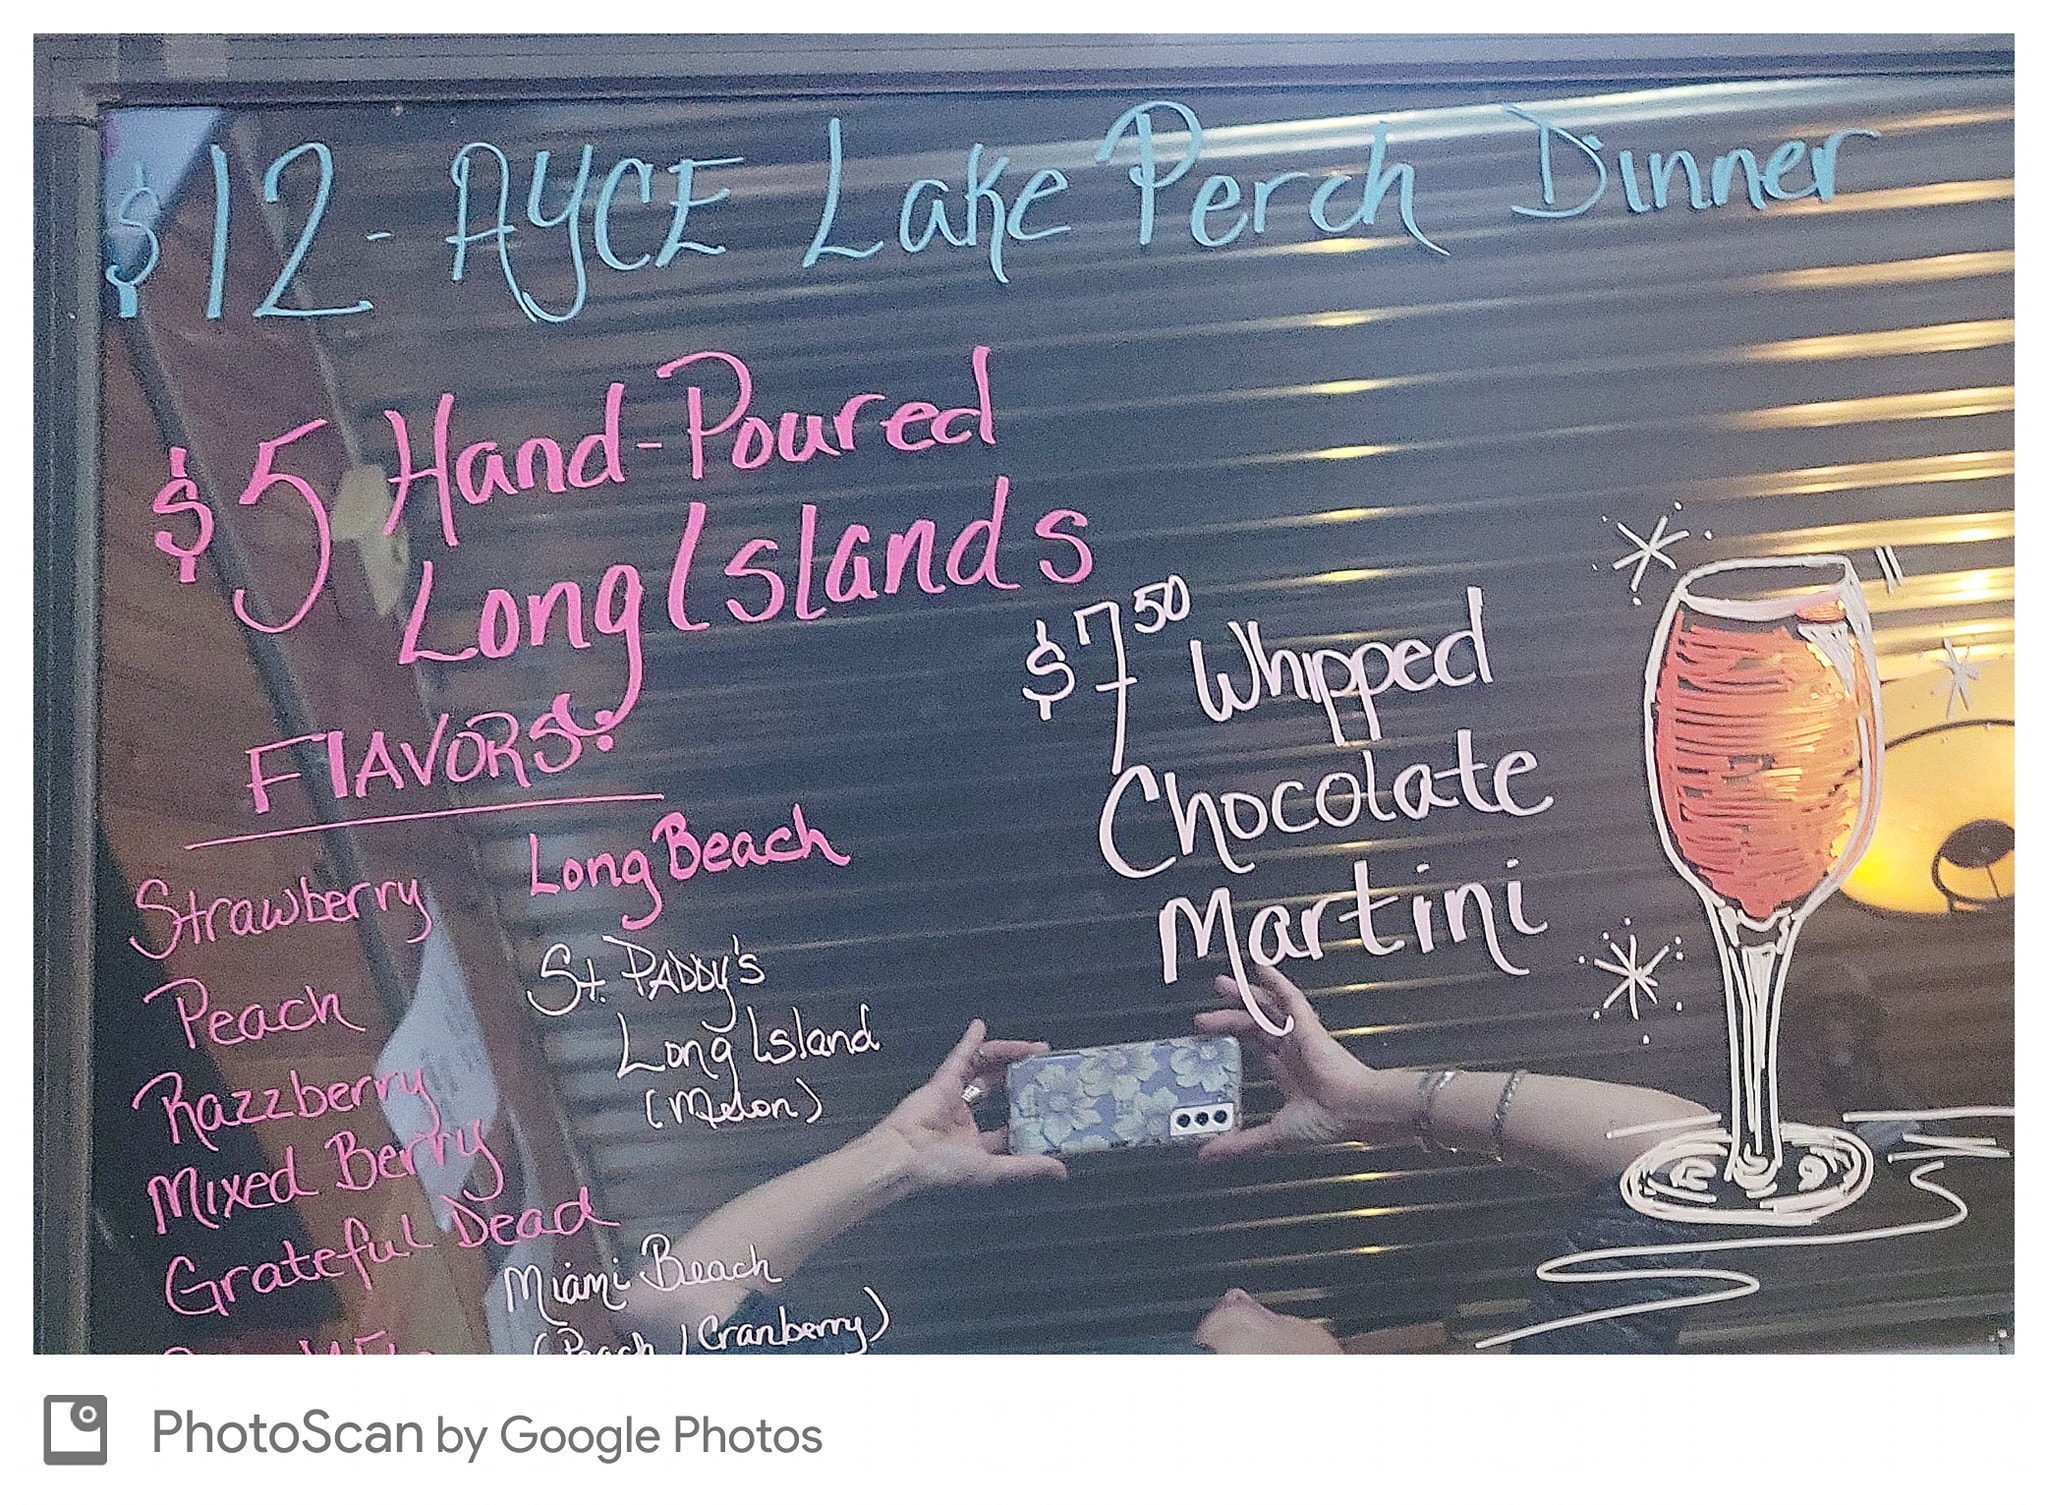 $12 - AYCE Lake Perch Dinner
$5 Hand-Poured
Long Islands
FLAVORS:
Strawberry
Peach
Razzberry
Mixed Berry
Grateful Dead
Long Beach
St. PADDY'S
Long Island
(Melon)
Miami Beach
(Peach / Cranberry)
$7 50 Whipped
Chocolate
Martini
PhotoScan by Google Photos